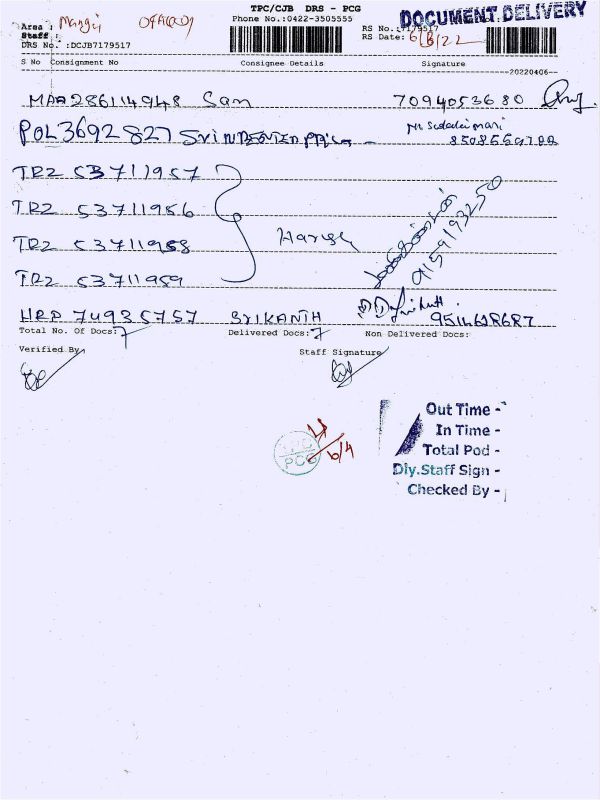 TPC/CJB DRS - PCG
Phone No.:0422-3505555
DOCUMENT DELIVERY
Area :
Staff :
DRS No. :DCJB7179517
RS No.:7179517
RS Date: 6/4/22
S No Consignment No Consignee Details Signature
20220406
MAA286114948 San 7094053680
POL3692827 8508559788
TRZ 53711957
TRZ 53711956
TRZ 53711958 Harish
TRZ 53711959
9159193250
HRP 74935757 SRIKANTH 9514628687
Total No. Of Docs: 7 Delivered Docs: 7 Non Delivered Docs:
Verified By Staff Signature
PCG 6/4
Out Time -
In Time -
Total Pod -
Dly.Staff Sign -
Checked By -